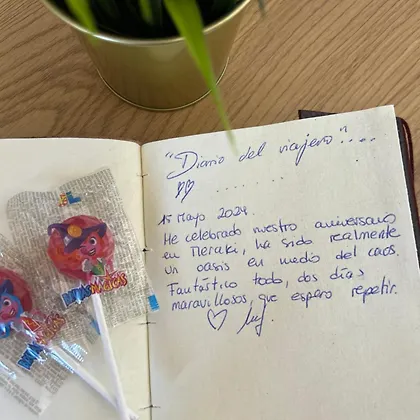 "Diario del viajero"....
15 Mayo 2024.
He celebrado nuestro aniversario
en Meraki, ha sido realmente
un oasis en medio del caos.
Fantástico todo, dos días
maravillosos, que espero repetir.